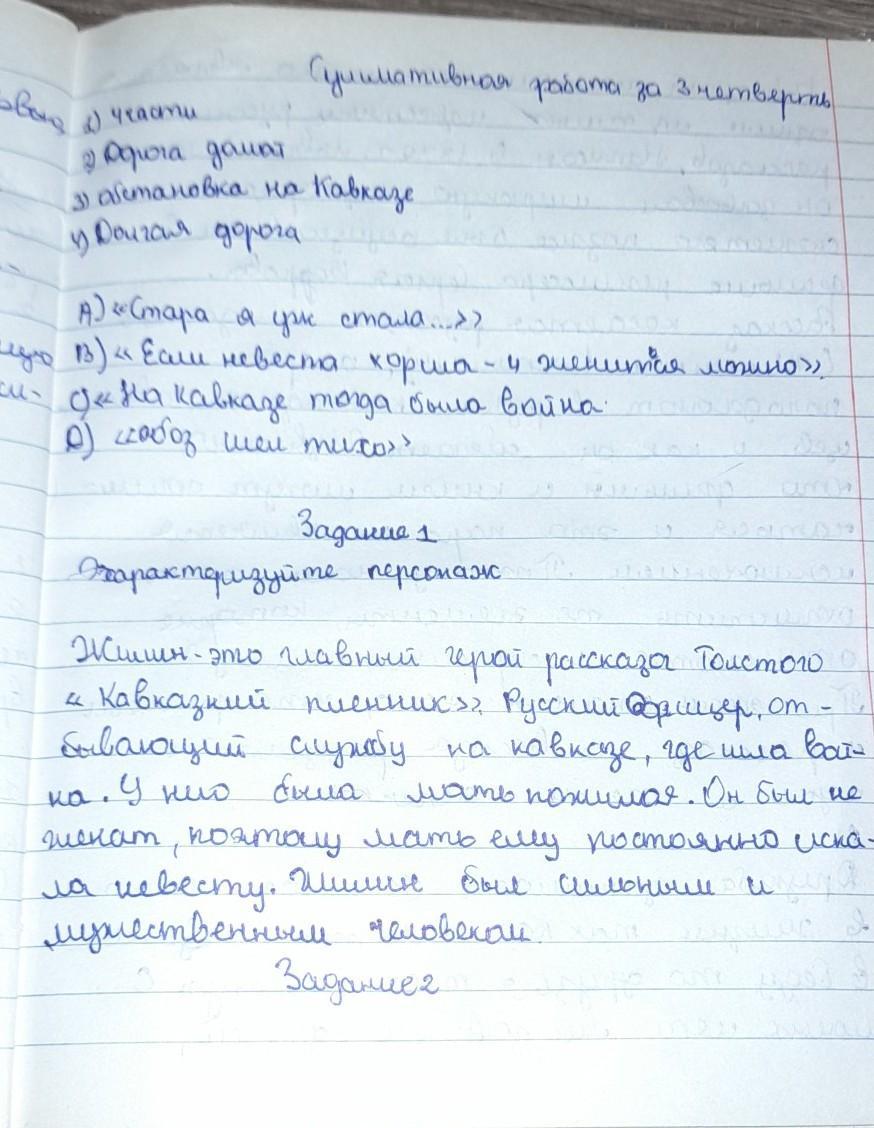 Суммативная работа за 3 четверть
1) Части
2) Дорога домой
3) Обстановка на Кавказе
4) Долгая дорога
А) «Стара я уж стала...»
В) «Если невеста хорша - и женится можно».
С) «На Кавказе тогда была война.
D) «обоз шел тихо»
Задание 1
Охарактеризуйте персонаж
Жилин - это главный герой рассказа Толстого
«Кавказкий пленник». Русский Офицер, от-
бывающий службу на кавказе, где шла вой-
на. У нио была мать пожилая. Он был не
женат, поэтому мать ему постоянно иска-
ла невесту. Жилин был сильным и
мужественным человеком.
Задание 2